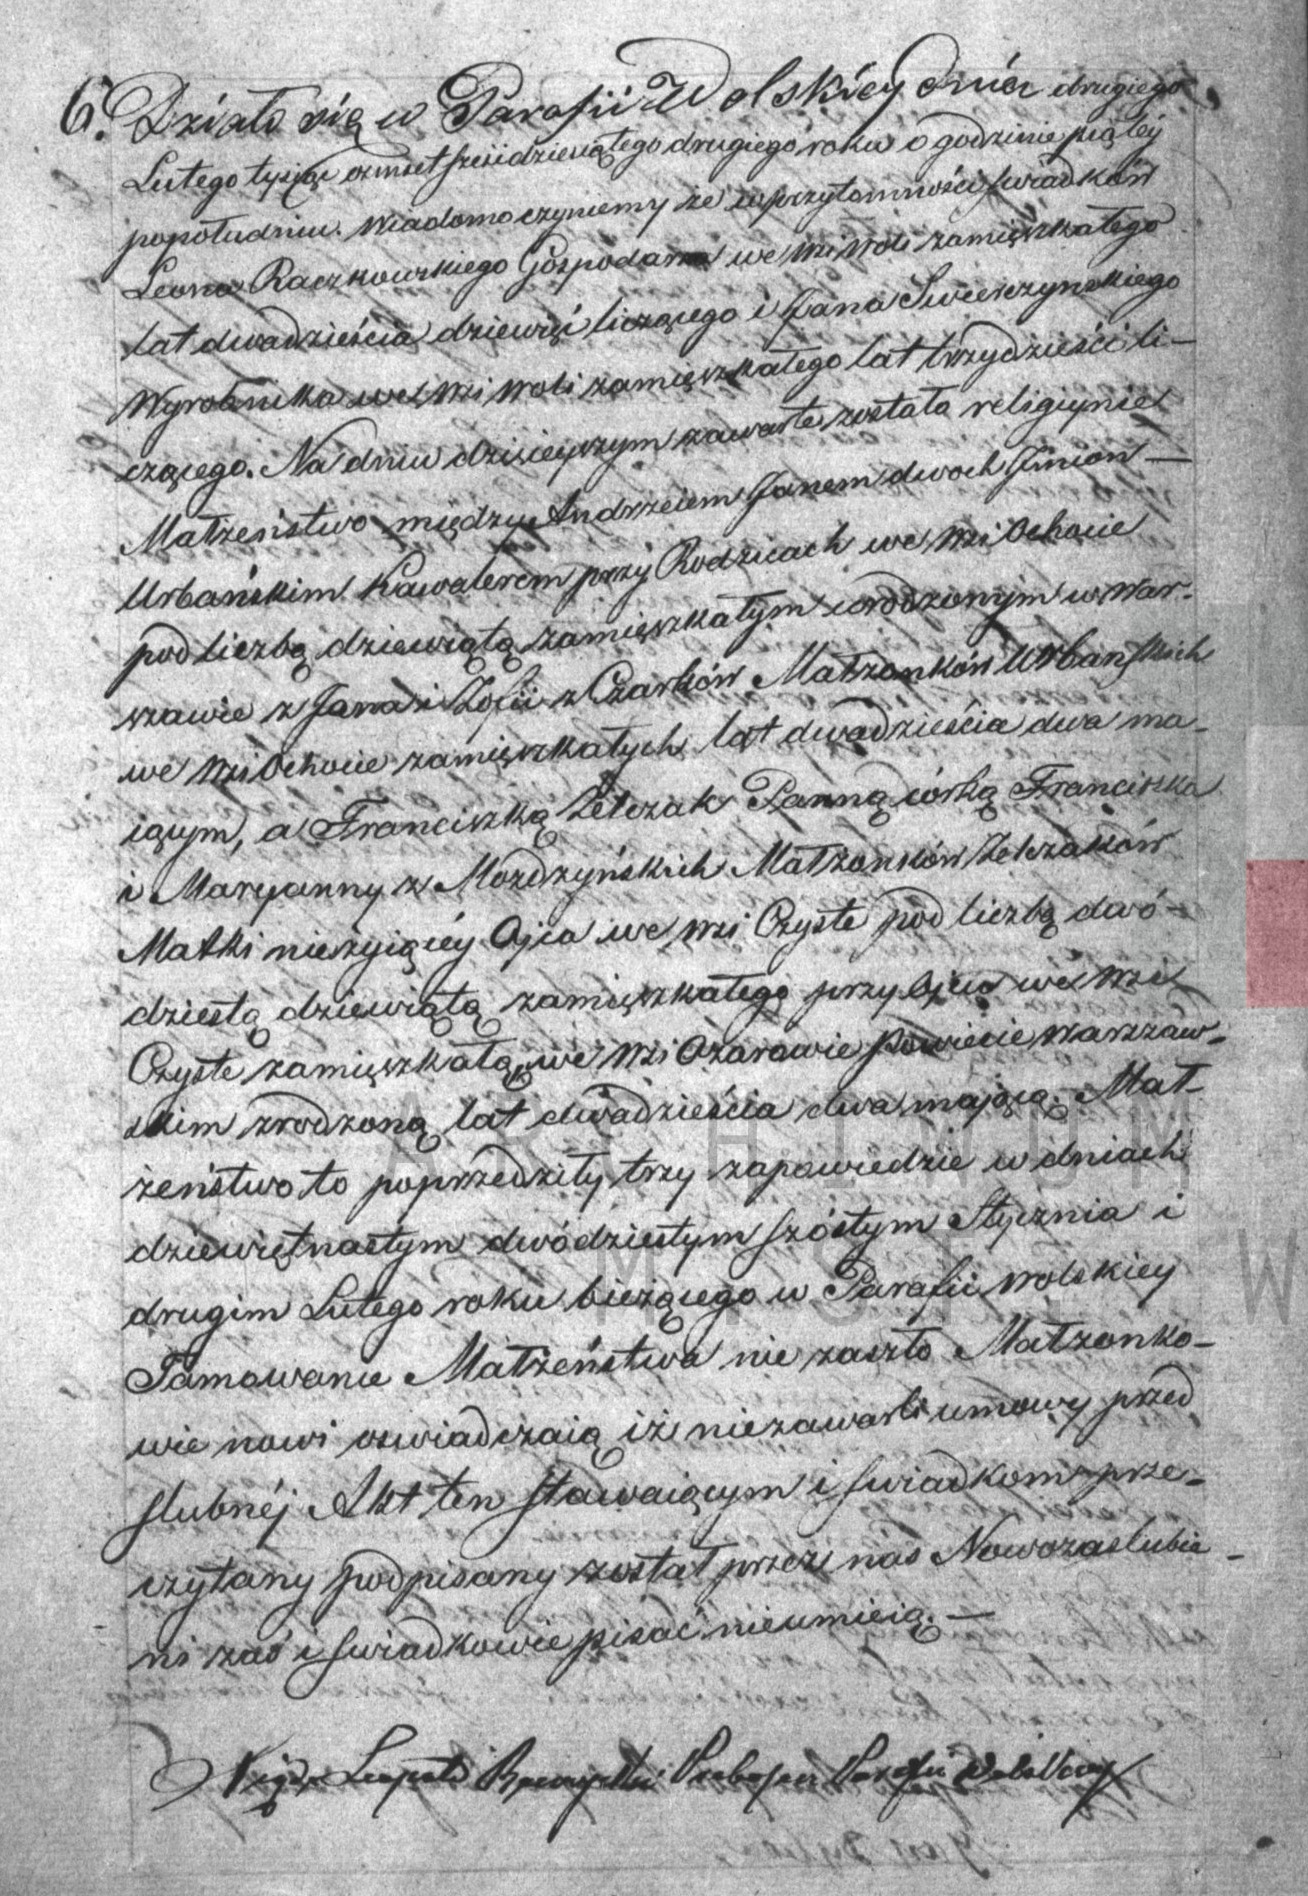 6. Działo się w Parafii Wolskiey dnia drugiego
Lutego tysiąc ośmset sześćdziesiątego drugiego roku o godzinie piątéy
popołudniu. Wiadomo czyniemy że w przytomności swiadków
Leona Raczkowskiego Gospodarza we wsi Woli zamięszkałego
lat dwadzieścia dziewięć liczącego i Jana Swierczynskiego
Wyrobnika we wsi Woli zamięszkałego lat trzydzieści li-
czącego. Na dniu dzisieyszym zawarte zostało religiynie
Małżeństwo między Andrzeiem Janem dwoch Imion —
Urbańskim Kawalerem przy Rodzicach we wsi Ochocie
pod liczbą dziewiątą zamięszkałym urodzonym w War-
szawie z Jana i Zofii z Czarków Małżonków Urbanskich
we wsi Ochocie zamięszkałych lat dwadzieścia dwa ma-
iącym, a Franciszką Zelczak Panną córką Franciszka
i Maryanny z Mozdzyńskich Małżonków Zelczaków
Matki nieżyiącéy Ojca we wsi Czyste pod liczbą dwó-
dziestą dziewiątą zamięszkałego przy Ojcu we wsi
Czyste zamięszkałą, we wsi Ożarowie powiecie Warszaw-
skim zrodzoną lat dwadzieścia dwa mającą. Mał-
żeństwo to poprzedziły trzy zapowiedzie w dniach
dziewiętnastym dwódziestym szóstym Stycznia i
drugim Lutego roku bieżącego w Parafii Wolskiey
Tamowanie Małżeństwa nie zaszło Małżonko-
wie nowi oswiadczaią iż niezawarli umowy przed
slubnéj Akt ten stawaiącym i swiadkom prze-
czytany podpisany został przez nas Nowozaslubie-
ni zaś i swiadkowie pisać nieumieią. —
Xiądz Proboszcz Parafii Wolskiey
ARCHIWUM
M. ST. W